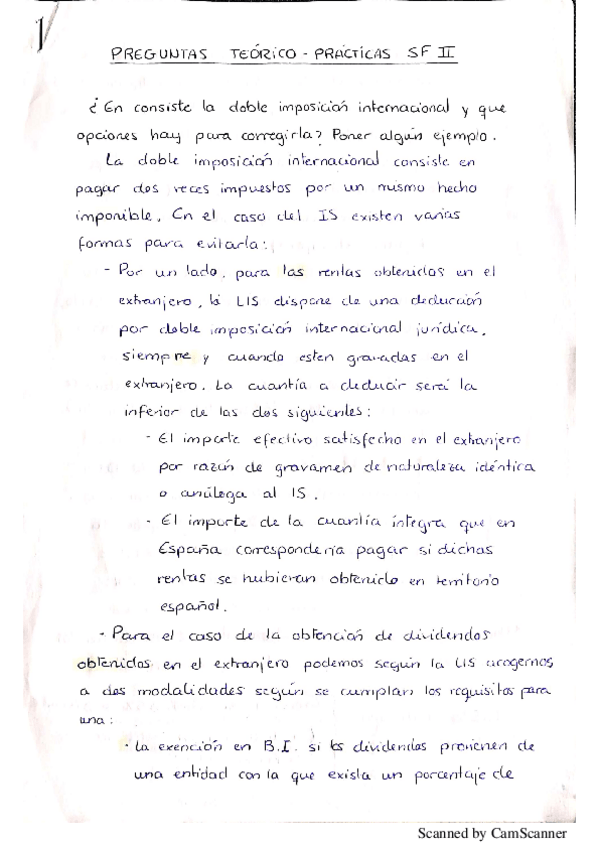 1
PREGUNTAS TEÓRICO - PRÁCTICAS SF II
¿ En consiste la doble imposición internacional y que
opciones hay para corregirla? Poner algún ejemplo.
La doble imposición internacional consiste en
pagar dos veces impuestos por un mismo hecho
imponible. En el caso del IS existen varias
formas para evitarla:
- Por un lado, para las rentas obtenidas en el
extranjero, la LIS dispone de una deducción
por doble imposición internacional jurídica,
siempre y cuando esten gravadas en el
extranjero. La cuantía a deducir será la
inferior de las dos siguientes:
- El importe efectivo satisfecho en el extranjero
por razón de gravamen de naturaleza idéntica
o análoga al IS.
- El importe de la cuantía íntegra que en
España correspondería pagar si dichas
rentas se hubieran obtenido en territorio
español.
- Para el caso de la obtención de dividendos
obtenidos en el extranjero podemos según la LIS acogernos
a dos modalidades según se cumplan los requisitos para
una:
· La exención en B.I. si los dividendos provienen de
una entidad con la que exista un porcentaje de
Scanned by CamScanner